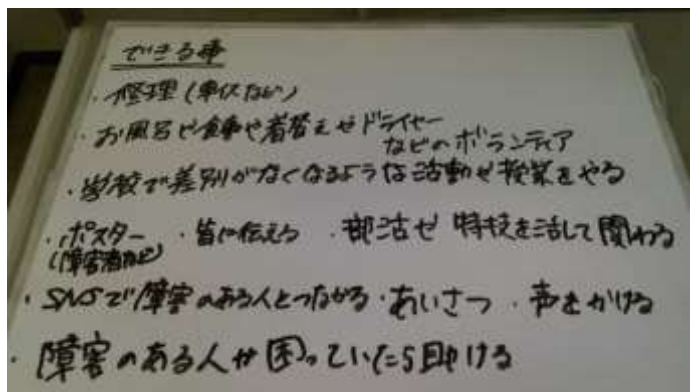 できる事
・修理(車イスなど)
・お風呂や食事や着替えやドライヤー
などのボランティア
・学校で差別がなくなるような活動や授業をやる
・ポスター ・皆に伝える ・部活や特技を活して関わる
(障害者など)
・SNSで障害のある人とつながる ・あいさつ ・声をかける
・障害のある人が困っていたら助ける